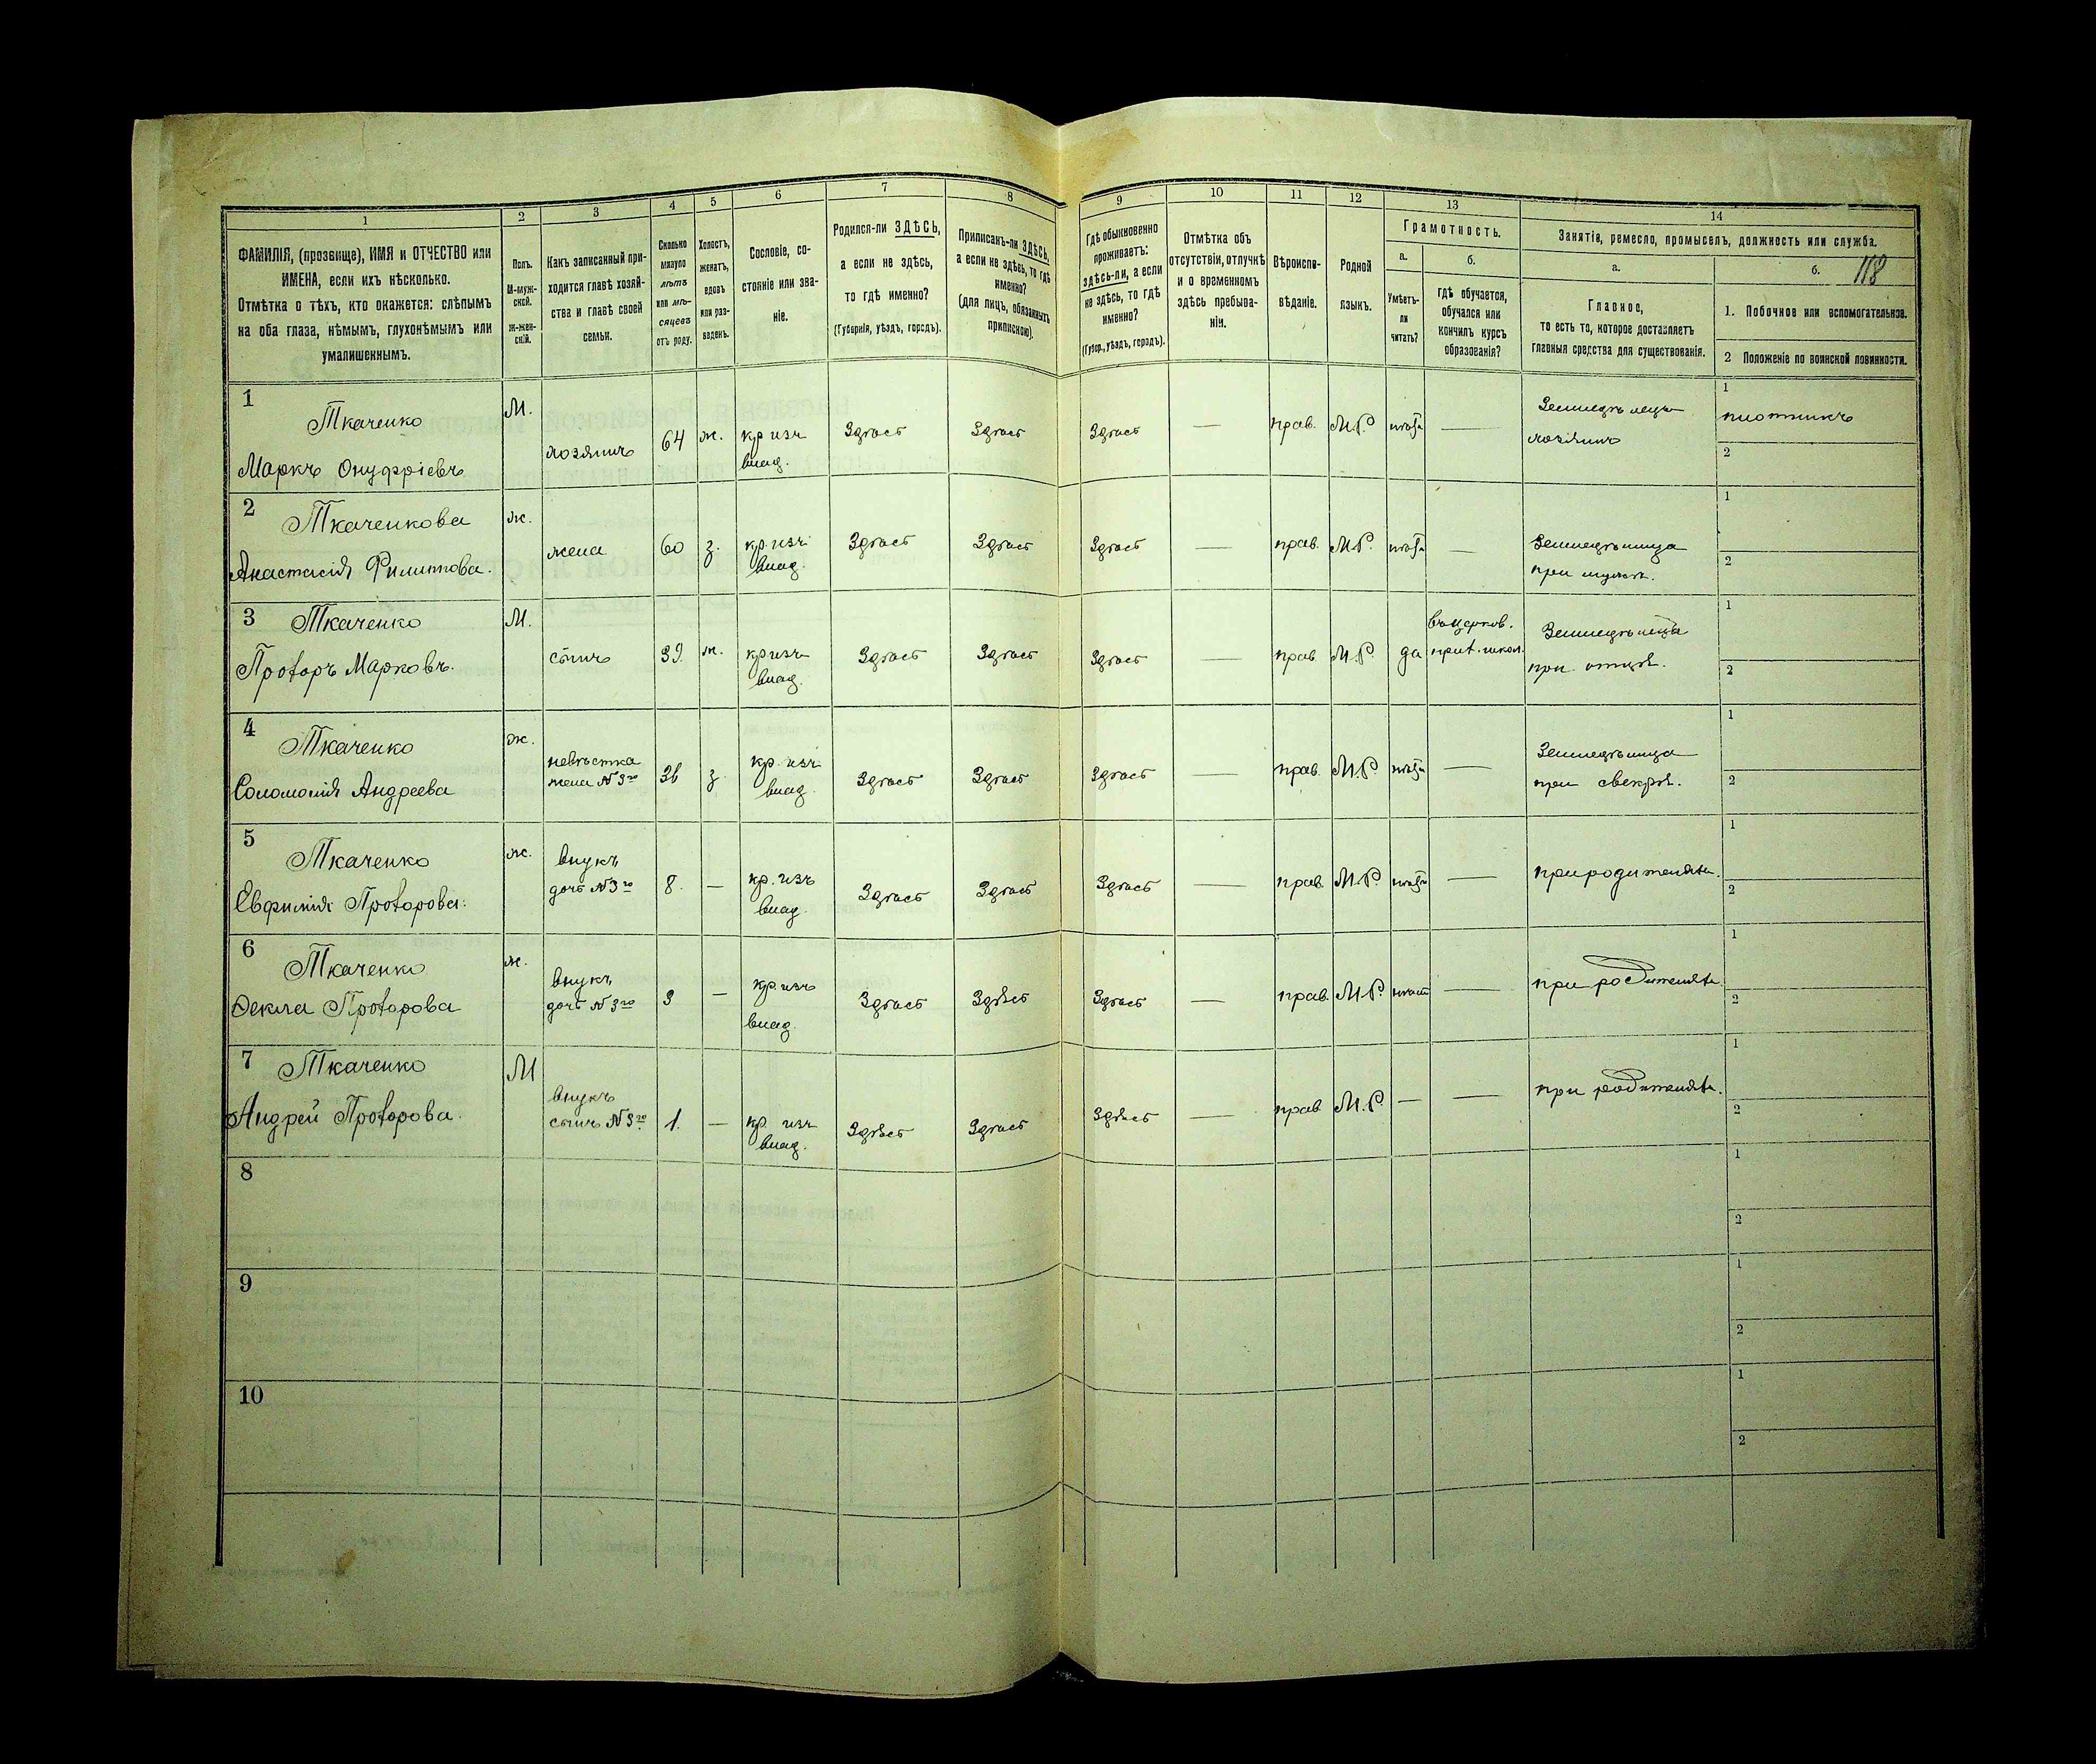 118
1 2 3 4 5 6 7 8 9 10 11 12 13 14
ФАМИЛІЯ, (прозвище), ИМЯ и ОТЧЕСТВО или
ИМЕНА, если ихъ нѣсколько.
Отмѣтка о тѣхъ, кто окажется: слѣпымъ
на оба глаза, нѣмымъ, глухонѣмымъ или
умалишеннымъ.
Полъ.
М-муж-
ской.
Ж-жен-
скій.
Какъ записанный при-
ходится главѣ хозяй-
ства и главѣ своей
семьи.
Сколько
минуло
лѣтъ
или мѣ-
сяцевъ
отъ роду.
Холостъ,
женатъ,
вдовъ
или раз-
веденъ.
Сословіе, со-
стояніе или зва-
ніе.
Родился-ли ЗДѢСЬ,
а если не здѣсь,
то гдѣ именно?
(Губернія, уѣздъ, городъ).
Приписанъ-ли ЗДѢСЬ,
а если не здѣсь, то гдѣ
именно?
(для лицъ, обязанныхъ
припискою).
Гдѣ обыкновенно
проживаетъ:
здѣсь-ли, а если
не здѣсь, то гдѣ
именно?
(Губер., уѣздъ, городъ).
Отмѣтка объ
отсутствіи, отлучкѣ
и о временномъ
здѣсь пребыва-
ніи.
Вѣроиспо-
вѣданіе.
Родной
языкъ.
Грамотность.
а.
Умѣетъ-
ли
читать?
б.
гдѣ обучается,
обучался или
кончилъ курсъ
образованія?
Занятіе, ремесло, промыселъ, должность или служба.
а.
Главное,
то есть то, которое доставляетъ
главныя средства для существованія.
б.
1. Побочное или вспомогательное.
2 Положеніе по воинской повинности.
1
Ткаченко
Маркъ Онуфріевъ
М.
хозяинъ
64
ж.
кр изъ
влад.
Здѣсь
Здѣсь
Здѣсь
—
прав.
М.Р.
нѣтъ
—
Земледѣлецъ
хозяинъ
1
плотникъ
2
2
Ткаченкова
Анастасія Филиппова.
ж.
жена
60
з.
кр. изъ
влад.
Здѣсь
Здѣсь
Здѣсь
—
прав.
М.Р.
нѣтъ
—
Земледѣлица
при мужѣ.
1
2
3
Ткаченко
Прохоръ Марковъ.
М.
сынъ
39.
ж.
кр изъ
влад.
Здѣсь
Здѣсь
Здѣсь
—
прав
М.Р.
да
въ церков.
прих. школ.
Земледѣлецъ
при отцѣ.
1
2
4
Ткаченко
Соломонія Андреева
ж.
невѣстка
жена №3го
36
з
кр. изъ
влад.
Здѣсь
Здѣсь
Здѣсь
—
прав.
М.Р.
нѣтъ
—
Земледѣлица
при свекрѣ.
1
2
5
Ткаченко
Евфимія Прохорова.
ж.
внука,
дочь №3го
8.
—
кр. изъ
влад.
Здѣсь
Здѣсь
Здѣсь
—
прав.
М.Р.
нѣтъ
—
при родителяхъ.
1
2
6
Ткаченко
Ѳекла Прохорова
ж.
внука,
дочь №3го
3
—
кр. изъ
влад.
Здѣсь
Здѣсь
Здѣсь
—
прав.
М.Р.
нѣтъ
—
при родителяхъ.
1
2
7
Ткаченко
Андрей Прохорова.
М
внукъ
сынъ №3го
1.
—
кр. изъ
влад.
Здѣсь
Здѣсь
Здѣсь
—
прав
М.Р.
—
—
при родителяхъ.
1
2
8
1
2
9
1
2
10
1
2